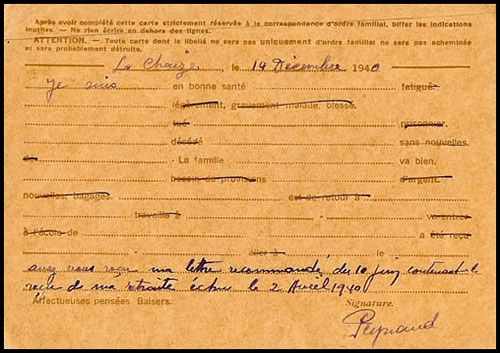 Après avoir complété cette carte strictement réservée à la correspondance d'ordre familial, biffer les indications
inutiles. — Ne rien écrire en dehors des lignes.
ATTENTION. — Toute carte dont le libellé ne sera pas uniquement d'ordre familial ne sera pas acheminée
et sera probablement détruite.
La Chaize, le 14 Décembre 1940
Je suis en bonne santé fatigué.
légèrement, gravement malade, blessé.
tué prisonnier.
décédé sans nouvelles.
de - La famille va bien.
besoin de provisions d'argent.
nouvelles, bagages. est de retour à
travaille à va entrer
à l'école de a été reçu
aller à le
avez vous reçu ma lettre recommandé du 10 juin contenant le
reçu de ma retraite échu le 2 Avril 1940
Affectueuses pensées. Baisers. Signature.
Peyraud